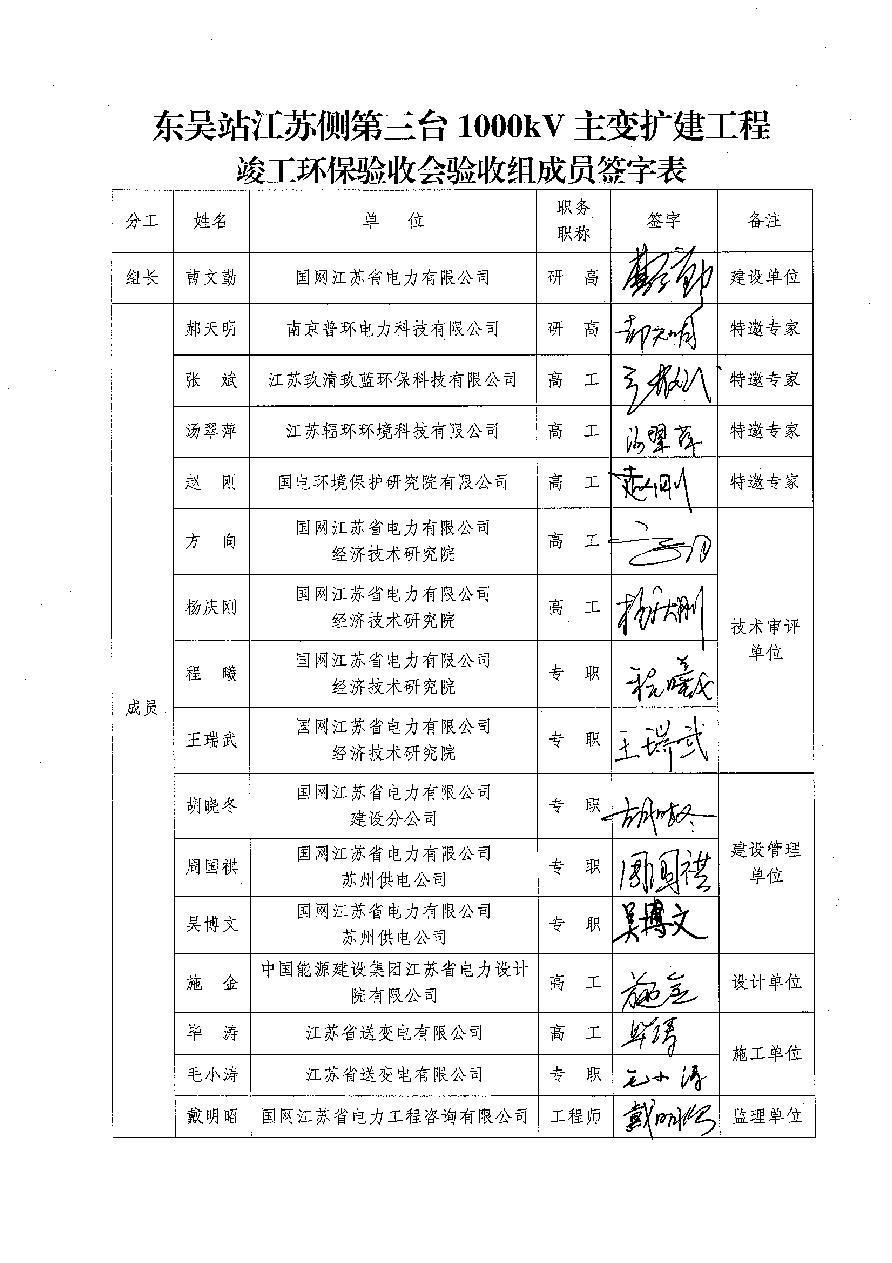 东吴站江苏侧第三台 1000kV 主变扩建工程
竣工环保验收会验收组成员签字表
分工 姓名 单 位 职务职称 签字 备注
组长 曹文勤 国网江苏省电力有限公司 研 高 曹文勤 建设单位
成员
郝天明 南京普环电力科技有限公司 研 高 郝天明 特邀专家
张 斌 江苏玖清玖蓝环保科技有限公司 高 工 特邀专家
汤翠萍 江苏辐环环境科技有限公司 高 工 汤翠萍 特邀专家
赵 刚 国电环境保护研究院有限公司 高 工 赵刚 特邀专家
方 向 国网江苏省电力有限公司 高 工 方向
经济技术研究院
杨庆刚 国网江苏省电力有限公司 高 工 杨庆刚
经济技术研究院
技术审评
单位
程 曦 国网江苏省电力有限公司 专 职 程曦
经济技术研究院
王瑞武 国网江苏省电力有限公司 专 职 王瑞武
经济技术研究院
胡晓冬 国网江苏省电力有限公司 专 职 胡晓冬
建设分公司
建设管理
单位
周国祺 国网江苏省电力有限公司 专 职 周国祺
苏州供电公司
吴博文 国网江苏省电力有限公司 专 职 吴博文
苏州供电公司
施 金 中国能源建设集团江苏省电力设计 高 工 施金 设计单位
院有限公司
毕 涛 江苏省送变电有限公司 高 工 毕涛 施工单位
毛小涛 江苏省送变电有限公司 专 职 毛小涛
戴明昭 国网江苏省电力工程咨询有限公司 工程师 戴明昭 监理单位